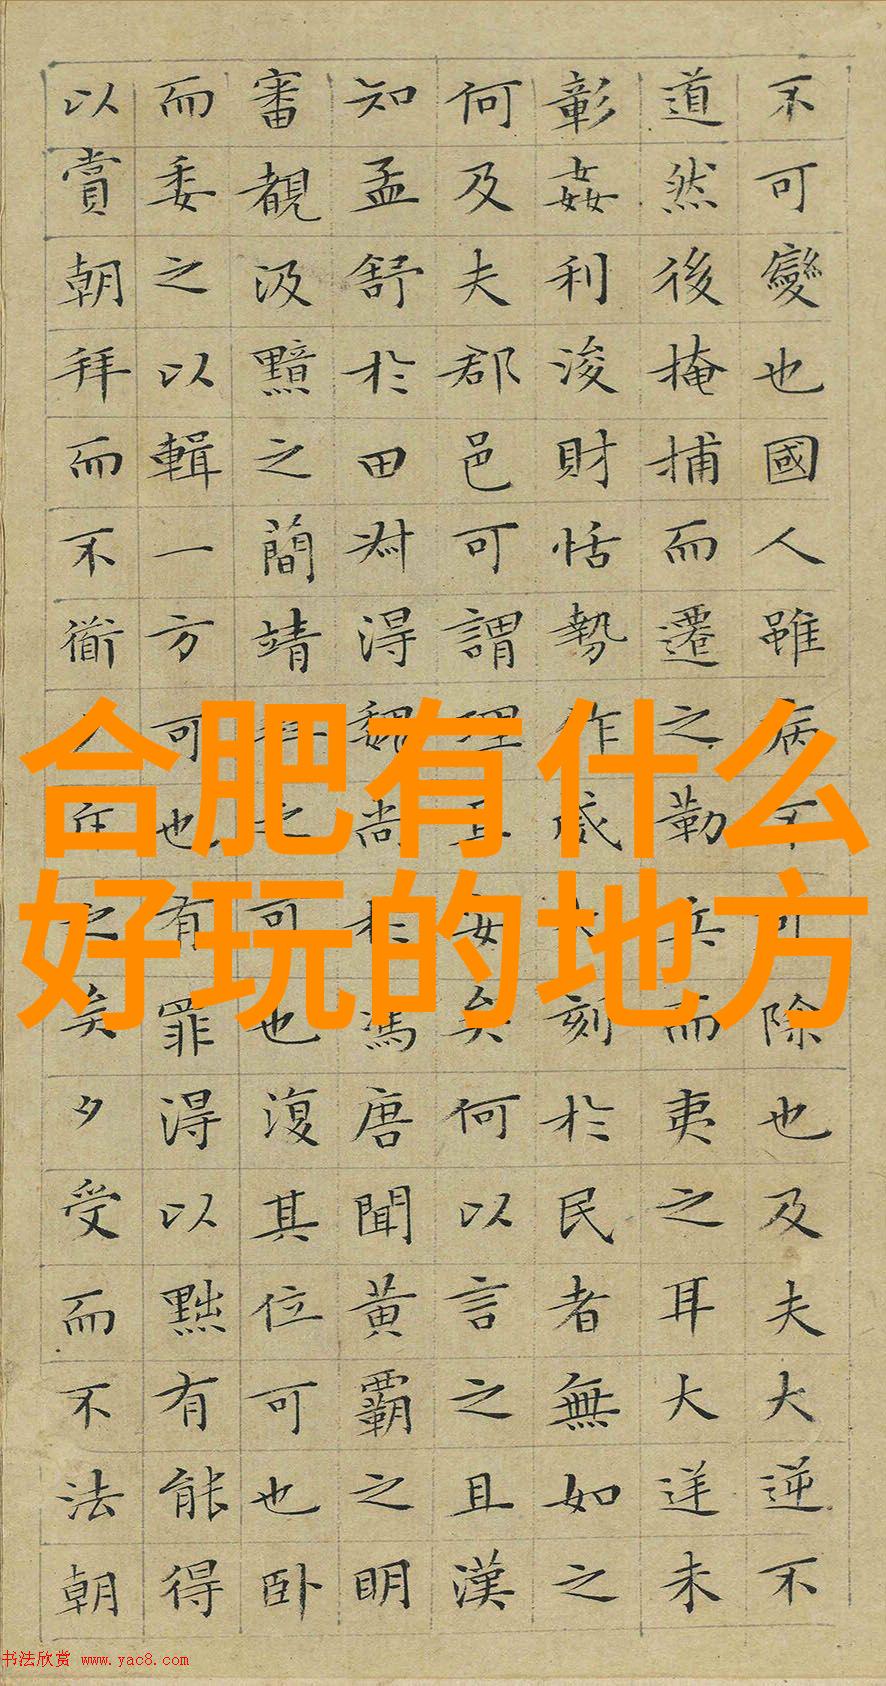 不可變也國人雖病不可除也及夫大逆不
道然後掩捕而遷之勒兵而夷之耳大逆未
彰姦利浚財怙勢作威大刻於民者無如之
何及夫郡邑可謂理且安矣何以言之且漢
知孟舒於田叔得魏尚於馮唐聞黃霸之明
審覩汲黯之簡靖拜之可也復其位可也臥
而委之以輯一方可也有罪得以黜有能得
以賞朝拜而不道夕斥之矣夕受而不法朝
合肥有什么
好玩的地方
书法欣赏 www.yac8.com